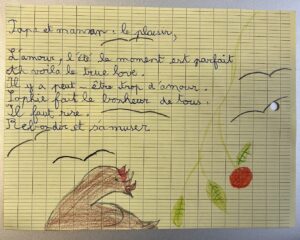 Papa et maman : le plaisir,
L'amour, l'été le moment est parfait
Ah voilà le true love.
Il y a peut-être trop d'amour.
Sophie fait le bonheur de tous.
Il faut rire.
et s'amuser